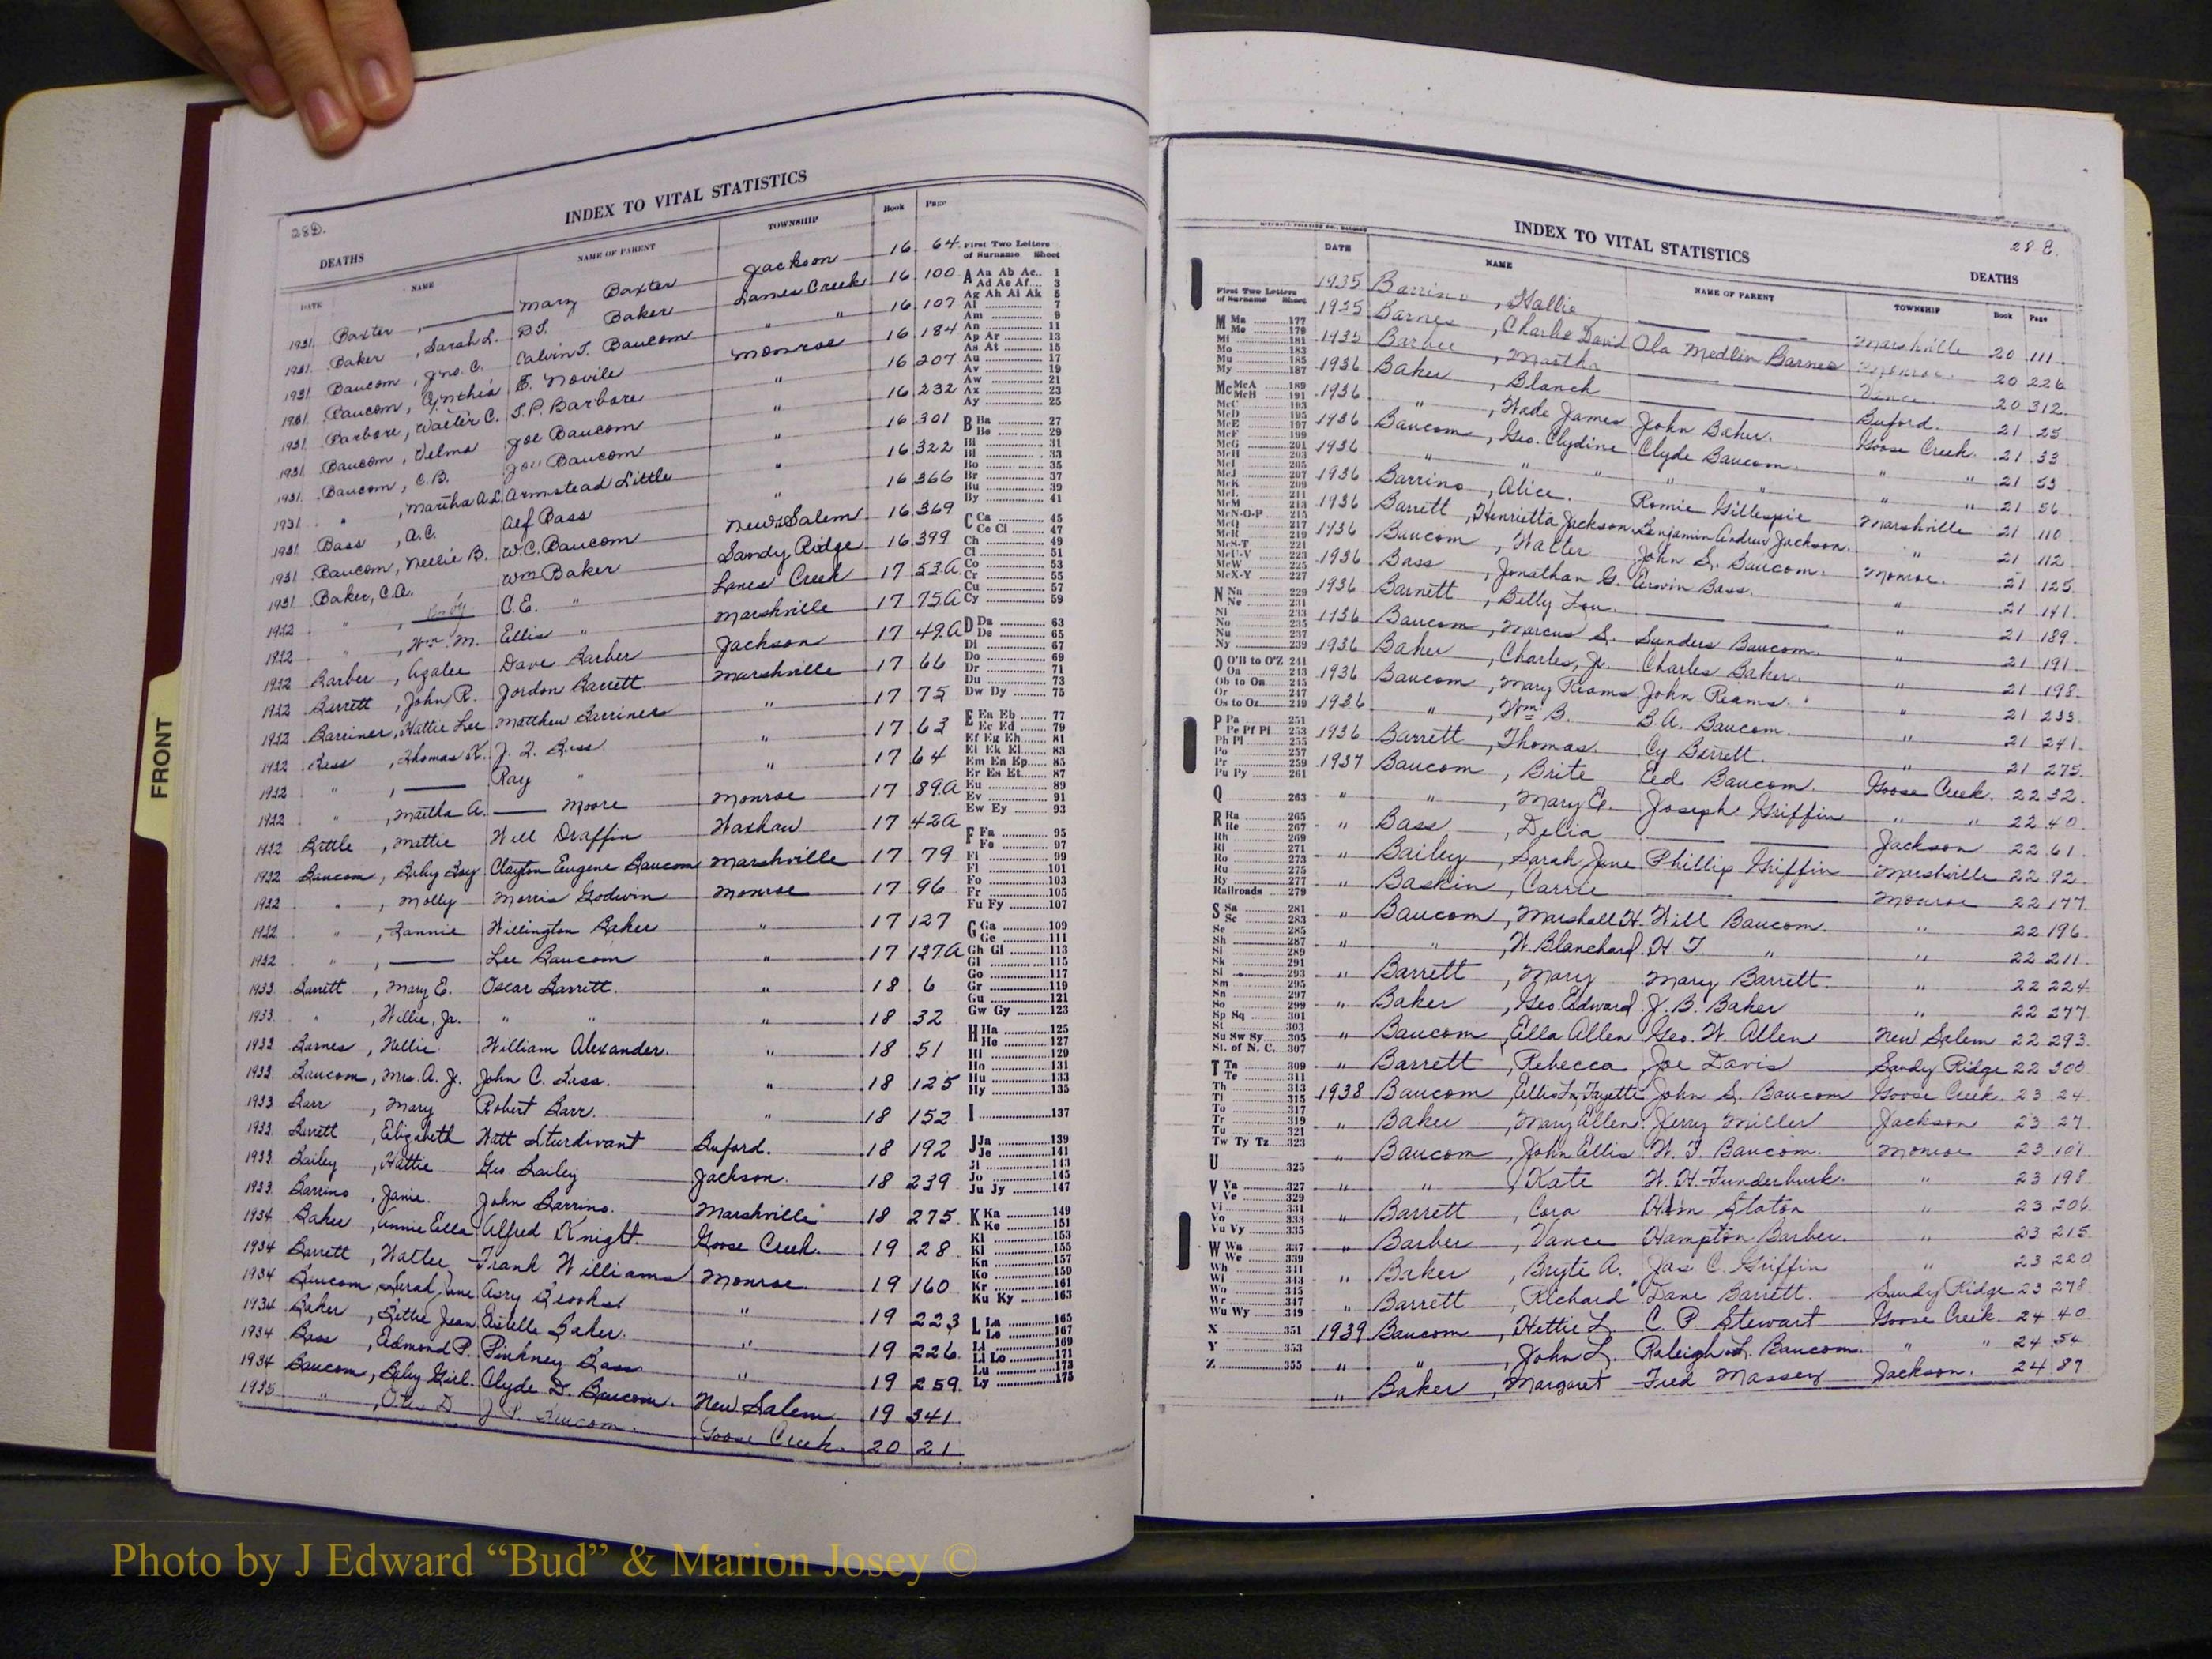 FRONT
28D.
INDEX TO VITAL STATISTICS
DEATHS
DATE NAME NAME OF PARENT TOWNSHIP Book Page
1931 Baxter, — Mary Baxter Jackson 16 64
1931 Baker, Sarah L. D.T. Baker Lanes Creek 16 100
1931 Baucom, Jno. C. Calvin T. Baucom " " 16 107
1931 Baucom, Cynthia Monroe 16 184
1931 Barbore, Walter C. T.P. Barbore " 16 207
1931 Baucom, Velma Joe Baucom " 16 232
1931 Baucom, C.B. Joe Baucom " 16 301
1931 " , Martha A.L. Armstead Little " 16 322
1931 Bass, A.C. Alf Bass " 16 366
1931 Baucom, Nellie B. W.C. Baucom New Salem 16 369
1931 Baker, C.A. Wm Baker Sandy Ridge 16 399
1932 " , C.E. " Lanes Creek 17 53A
1932 " , Wm. M. Ellis " Marshville 17 75A
1932 Barber, Azalee Dave Barber Jackson 17 49A
1932 Barrett, John R. Jordon Barrett Marshville 17 66
1932 Barriner, Hattie Lee Matthew Barriner " 17 75
1932 Bass, Thomas K. J. Z. Bass " 17 63
1932 " , — Ray " " 17 64
1932 " , Martha A. — Moore Monroe 17 89A
1932 Battle, Mattie Will Draffin Waxhaw 17 42A
1932 Baucom, Baby Boy Clayton Eugene Baucom Marshville 17 79
1932 " , Molly Morris Godwin Monroe 17 96
1932 " , Fannie Willington Baker " 17 127
1932 " , — Lee Baucom " 17 137A
1933 Barrett, Mary E. Oscar Barrett. " 18 6
1933 " , Willie, Jr. " " " 18 32
1933 Barnes, Nellie William Alexander. " 18 51
1933 Baucom, Mrs. A. J. John C. Bass. " 18 125
1933 Barr, Mary Robert Barr. " 18 152
1933 Barrett, Elizabeth Watt Sturdivant Buford. 18 192
1933 Bailey, Hattie Geo Bailey Jackson. 18 239
1933 Barrino, Janie. John Barrino. Marshville 18 275
1934 Baker, Annie Ella Alfred Knight. Goose Creek. 19 28
1934 Barrett, Walter Frank Williams Monroe 19 160
1934 Baucom, Sarah Jane Asry Brooks " 19 223
1934 Baker, Bettie Jean Estelle Baker. " 19 226
1934 Bass, Edmond P. Pinkney Bass " 19 259.
1934 Baucom, Baby Girl. Clyde D. Baucom. New Salem 19 341
1935 " , Ote D. J. P. Baucom. Goose Creek. 20 21
First Two Letters
of Surname Sheet
A Aa Ab Ac.. 1
Ad Ae Af... 3
Ag Ah Ai Ak 5
Al 7
Am 9
An 11
Ap Ar 13
As At 15
Au 17
Av 19
Aw 21
Ax 23
Ay 25
B Ba 27
Be 29
Bi 31
Bl 33
Bo 35
Br 37
Bu 39
By 41
C Ca 45
Ce Ci 47
Ch 49
Cl 51
Co 53
Cr 55
Cu 57
Cy 59
D Da 63
De 65
Di 67
Do 69
Dr 71
Du 73
Dw Dy 75
E Ea Eb 77
Ec Ed 79
Ef Eg Eh 81
Ei Ek El 83
Em En Ep 85
Er Es Et 87
Eu 89
Ev 91
Ew Ey 93
F Fa 95
Fe 97
Fi 99
Fl 101
Fo 103
Fr 105
Fu Fy 107
G Ga 109
Ge 111
Gh Gi 113
Gl 115
Go 117
Gr 119
Gu 121
Gw Gy 123
H Ha 125
He 127
Hi 129
Ho 131
Hu 133
Hy 135
I 137
J Ja 139
Je 141
Ji 143
Jo 145
Ju Jy 147
K Ka 149
Ke 151
Ki 153
Kl 155
Kn 157
Ko 159
Kr 161
Ku Ky 163
L La 165
Le 167
Li 169
Ll Lo 171
Lu 173
Ly 175
INDEX TO VITAL STATISTICS
28 E.
DEATHS
DATE NAME NAME OF PARENT TOWNSHIP Book Page
First Two Letters
of Surname Sheet
M Ma 177
Me 179
Mi 181
Mo 183
Mu 185
My 187
Mc McA 189
McB 191
McC 193
McD 195
McE 197
McF 199
McG 201
McH 203
McI 205
McJ 207
McK 209
McL 211
McM 213
McN-O-P 215
McQ 217
McR 219
McS-T 221
McU-V 223
McW 225
McX-Y 227
N Na 229
Ne 231
Ni 233
No 235
Nu 237
Ny 239
O O'B to O'Z 241
Oa 243
Ob to On 245
Or 247
Os to Oz 249
P Pa 251
Pe Pf Pi 253
Ph Pl 255
Po 257
Pr 259
Pu Py 261
Q 263
R Ra 265
Re 267
Rh 269
Ri 271
Ro 273
Ru 275
Ry 277
Railroads 279
S Sa 281
Sc 283
Se 285
Sh 287
Si 289
Sk 291
Sl 293
Sm 295
Sn 297
So 299
Sp Sq 301
St 303
Su Sw Sy 305
St. of N. C. 307
T Ta 309
Te 311
Th 313
Ti 315
To 317
Tr 319
Tu 321
Tw Ty Tz 323
U 325
V Va 327
Ve 329
Vi 331
Vo 333
Vu Vy 335
W Wa 337
We 339
Wh 341
Wi 343
Wo 345
Wr 347
Wu Wy 349
X 351
Y 353
Z 355
1935 Barrino, Hallie — — Marshville 20 111.
1935 Barnes, Charlie David Ola Medlin Barnes Monroe 20 226
1935 Barbee, Martha — — Vance 20 312.
1936 Baker, Blanch — — Buford. 21 25
1936 " , Wade James John Baker. Goose Creek. 21 33
1936 Baucom, Geo. Clydine Clyde Baucom. " " 21 53
1936 " " " " " " " 21 56
1936 Barrino, Alice. Romie Gillespie Marshville 21 110
1936 Barrett, Henrietta Jackson Benjamin Andrew Jackson. " 21 112
1936 Baucom, Walter John S. Baucom. Monroe. 21 125
1936 Bass, Jonathan G. Erwin Bass. " 21 141
1936 Barnett, Betty Lou. — — " 21 189
1936 Baucom, Marcus S. Sanders Baucom. " 21 191
1936 Baker, Charles, Jr. Charles Baker. " 21 198.
1936 Baucom, Mary Reams John Reams. " 21 233
1936 " , Wm. B. B.A. Baucom. " 21 241.
1936 Barrett, Thomas. Cy Barrett. " 21 275.
1937 Baucom, Brite Eed Baucom. Goose Creek. 22 32.
" " , Mary E. Joseph Griffin " " 22 40
" Bass, Delia — — Jackson 22 61.
" Bailey, Sarah Jane Phillip Griffin Marshville 22 92.
" Baskin, Carrie — — Monroe 22 177.
" Baucom, Marshall H. Will Baucom. " 22 196.
" " , W. Blanchard. H T. " " 22 211.
" Barrett, Mary Mary Barrett. " 22 224
" Baker, Geo. Edward. J. B. Baker " 22 277
" Baucom, Ella Allen Geo. W. Allen New Salem 22 293.
" Barrett, Rebecca Joe Davis Sandy Ridge 22 300
1938 Baucom, Ellis LaFayette John S. Baucom Goose Creek. 23 24
" Baker, Mary Allen. Jerry Miller Jackson 23 27.
" Baucom, John Ellis W. T. Baucom. Monroe 23 101
" " , Kate W. H. Funderburk. " 23 198
" Barrett, Cora Ham Slaton " 23 206.
" Barber, Vance Hampton Barber. " 23 215.
" Baker, Bryte A. Jas C. Griffin " 23 220
" Barrett, Richard Dane Barrett. Sandy Ridge 23 278
1939 Baucom, Hettie L. C. P. Stewart Goose Creek. 24 40
" " , John L. Raleigh L. Baucom. " " 24 54
" Baker, Margaret Fred Massey Jackson. 24 87
Photo by J Edward “Bud” & Marion Josey ©